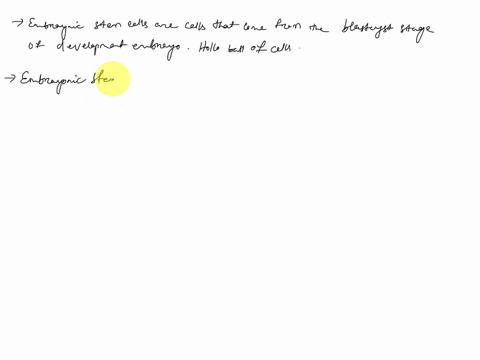 → Embrayonic stem cells are cells that come from the blastcyst stage
of development embrayo. Hollo ball of cells.
→ Embrayonic Stem